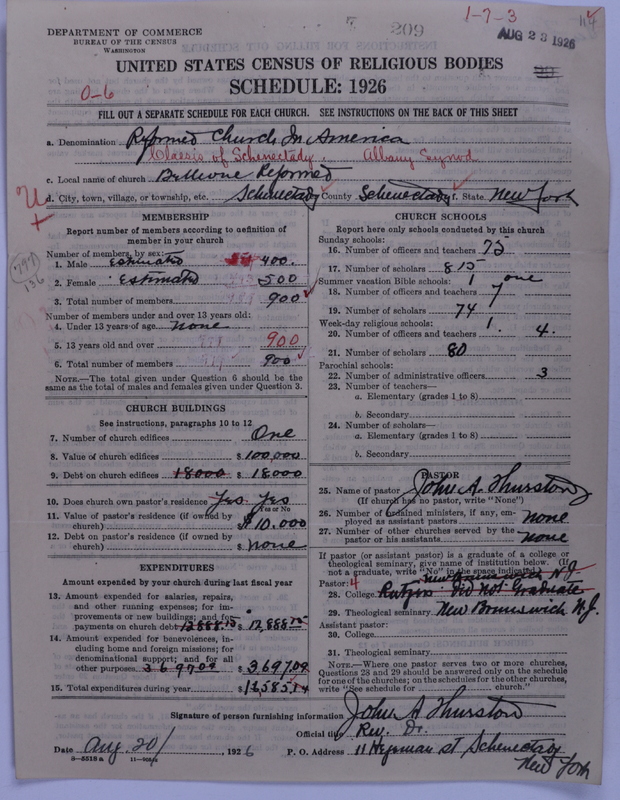 DEPARTMENT OF COMMERCE
BUREAU OF THE CENSUS
WASHINGTON
209
1-7-3
AUG 23 1926
UNITED STATES CENSUS OF RELIGIOUS BODIES
SCHEDULE: 1926
0-6
FILL OUT A SEPARATE SCHEDULE FOR EACH CHURCH. SEE INSTRUCTIONS ON THE BACK OF THIS SHEET
a. Denomination Reformed Church In America
Classis of Schenectady. Albany Synod
c. Local name of church Bellevue Reformed
d. City, town, village, or township, etc. Schenectady County Schenectady f. State New York
MEMBERSHIP
Report number of members according to definition of
member in your church
Number of members, by sex:
1. Male estimated 400.
2. Female Estimated 500
3. Total number of members 900
Number of members under and over 13 years old:
4. Under 13 years of age none
5. 13 years old and over 900
6. Total number of members 900
NOTE.—The total given under Question 6 should be the
same as the total of males and females given under Question 3.
CHURCH BUILDINGS
See instructions, paragraphs 10 to 12
7. Number of church edifices One
8. Value of church edifices $ 100,000
9. Debt on church edifices 18000 $ 18000
10. Does church own pastor's residence Yes. Yes
(Yes or No)
11. Value of pastor's residence (if owned by
church) $ 10.000
12. Debt on pastor's residence (if owned by
church) $ none
EXPENDITURES
Amount expended by your church during last fiscal year
13. Amount expended for salaries, repairs,
and other running expenses; for im-
provements or new buildings; and for
payments on church debt 12888.15 $ 12,888.15
14. Amount expended for benevolences, in-
cluding home and foreign missions; for
denominational support; and for all
other purposes 3697.09 $ 3697.09
15. Total expenditures during year $
CHURCH SCHOOLS
Report here only schools conducted by this church
Sunday schools:
16. Number of officers and teachers 75
17. Number of scholars 815
Summer vacation Bible schools: 1 one
18. Number of officers and teachers 7
19. Number of scholars 74
Week-day religious schools: 1.
20. Number of officers and teachers 4.
21. Number of scholars 80
Parochial schools:
22. Number of administrative officers 3
23. Number of teachers—
a. Elementary (grades 1 to 8)
b. Secondary
24. Number of scholars—
a. Elementary (grades 1 to 8)
b. Secondary
PASTOR
25. Name of pastor John A. Thurston
(If church has no pastor, write "None")
26. Number of ordained ministers, if any, em-
ployed as assistant pastors none
27. Number of other churches served by the
pastor or his assistants none
If pastor (or assistant pastor) is a graduate of a college or
theological seminary, give name of institution below. (If
not a graduate, write "No" in the space indicated)
Pastor: 4 New Brunswick N.J
28. College Rutgers did not Graduate
29. Theological seminary New Brunswick N.J.
Assistant pastor:
30. College
31. Theological seminary
NOTE.—Where one pastor serves two or more churches,
Questions 28 and 29 should be answered only on the schedule
for one of the churches; on the schedules for the other churches,
write "See schedule for church."
Signature of person furnishing information John A Thurston
Official title Rev. Dr.
Date Aug. 20/ 1926 P. O. Address 11 St Schenectady
New York
8-5518 a